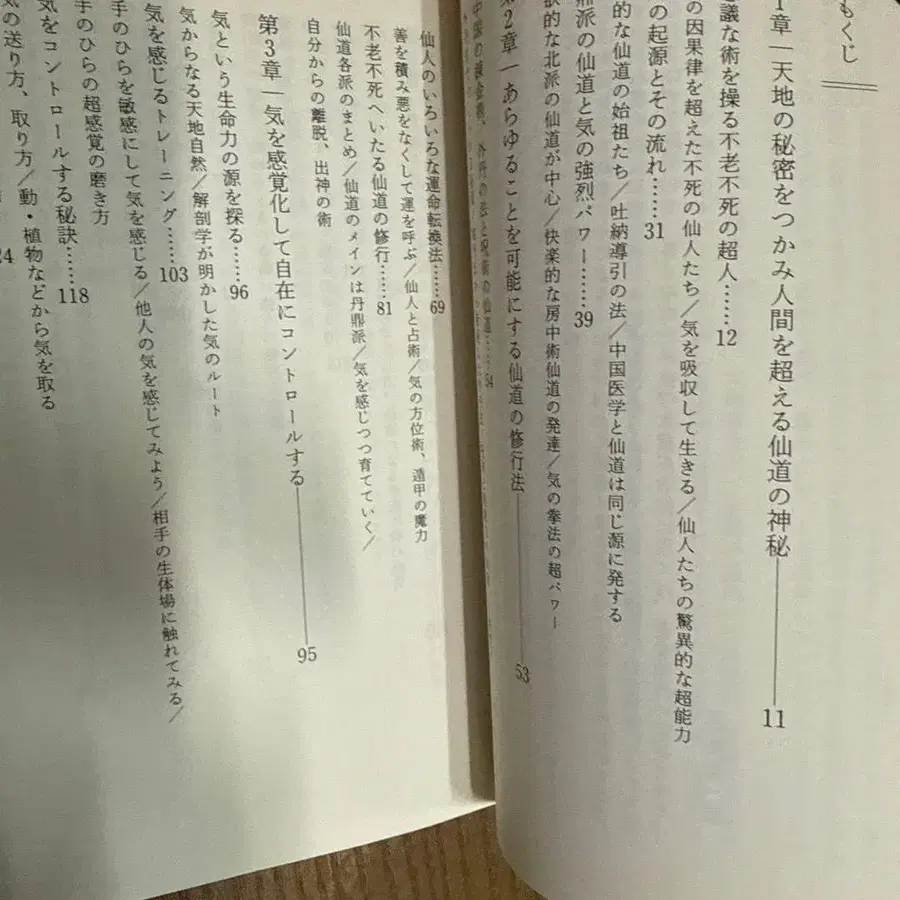 もくじ
1章―天地の秘密をつかみ人間を超える仙道の神秘――11
議な術を操る不老不死の超人……12
の因果律を超えた不死の仙人たち/気を吸収して生きる/仙人たちの驚異的な超能力
の起源とその流れ……31
的な仙道の始祖たち/吐納導引の法/中国医学と仙道は同じ源に発する
鼎派の仙道と気の強烈パワー……39
的な北派の仙道が中心/快楽的な房中術仙道の発達/気の拳法の超パワー
第2章―あらゆることを可能にする仙道の修行法――53
中国の錬金術、外丹の法と呪術の仙道……54
仙人のいろいろな運命転換法……69
善を積み悪をなくして運を呼ぶ/仙人と占術/気の方位術、遁甲の魔力
不老不死へいたる仙道の修行……81
仙道各派のまとめ/仙道のメインは丹鼎派/気を感じつつ育てていく/
自分からの離脱、出神の術
第3章―気を感覚化して自在にコントロールする――95
気という生命力の源を探る……96
気からなる天地自然/解剖学が明かした気のルート
気を感じるトレーニング……103
手のひらを敏感にして気を感じる/他人の気を感じてみよう/相手の生体場に触れてみる/
手のひらの超感覚の磨き方
気をコントロールする秘訣……118
気の送り方、取り方/動・植物などから気を取る
24